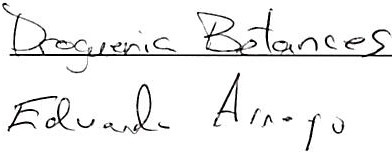 Droguenia Botances
Eduardo Arroyo